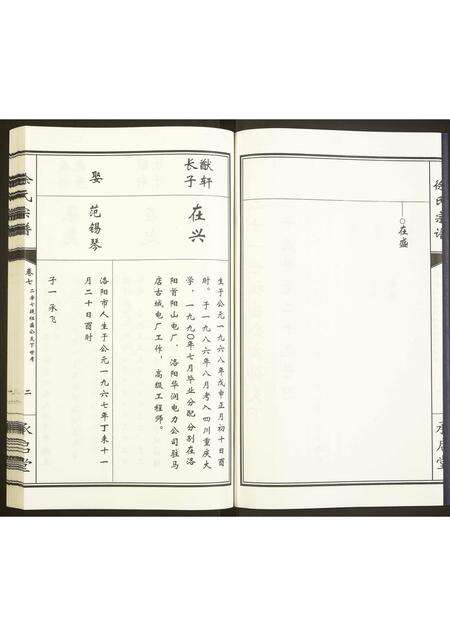 ○在盛
猷轩
长子
在兴
生于公元一九六八年戊申正月初十日酉
时。于一九八六年八月考入四川重庆大
学，一九九〇年七月毕业分配分别在洛
阳首阳山电厂、洛阳华润电力公司驻马
店古城电厂工作，高级工程师。
娶
范锡琴
洛阳市人生于公元一九六七年丁未十一
月二十日酉时
子一 承飞
氏宗谱
卷七
二
承启堂
氏宗谱
承启堂